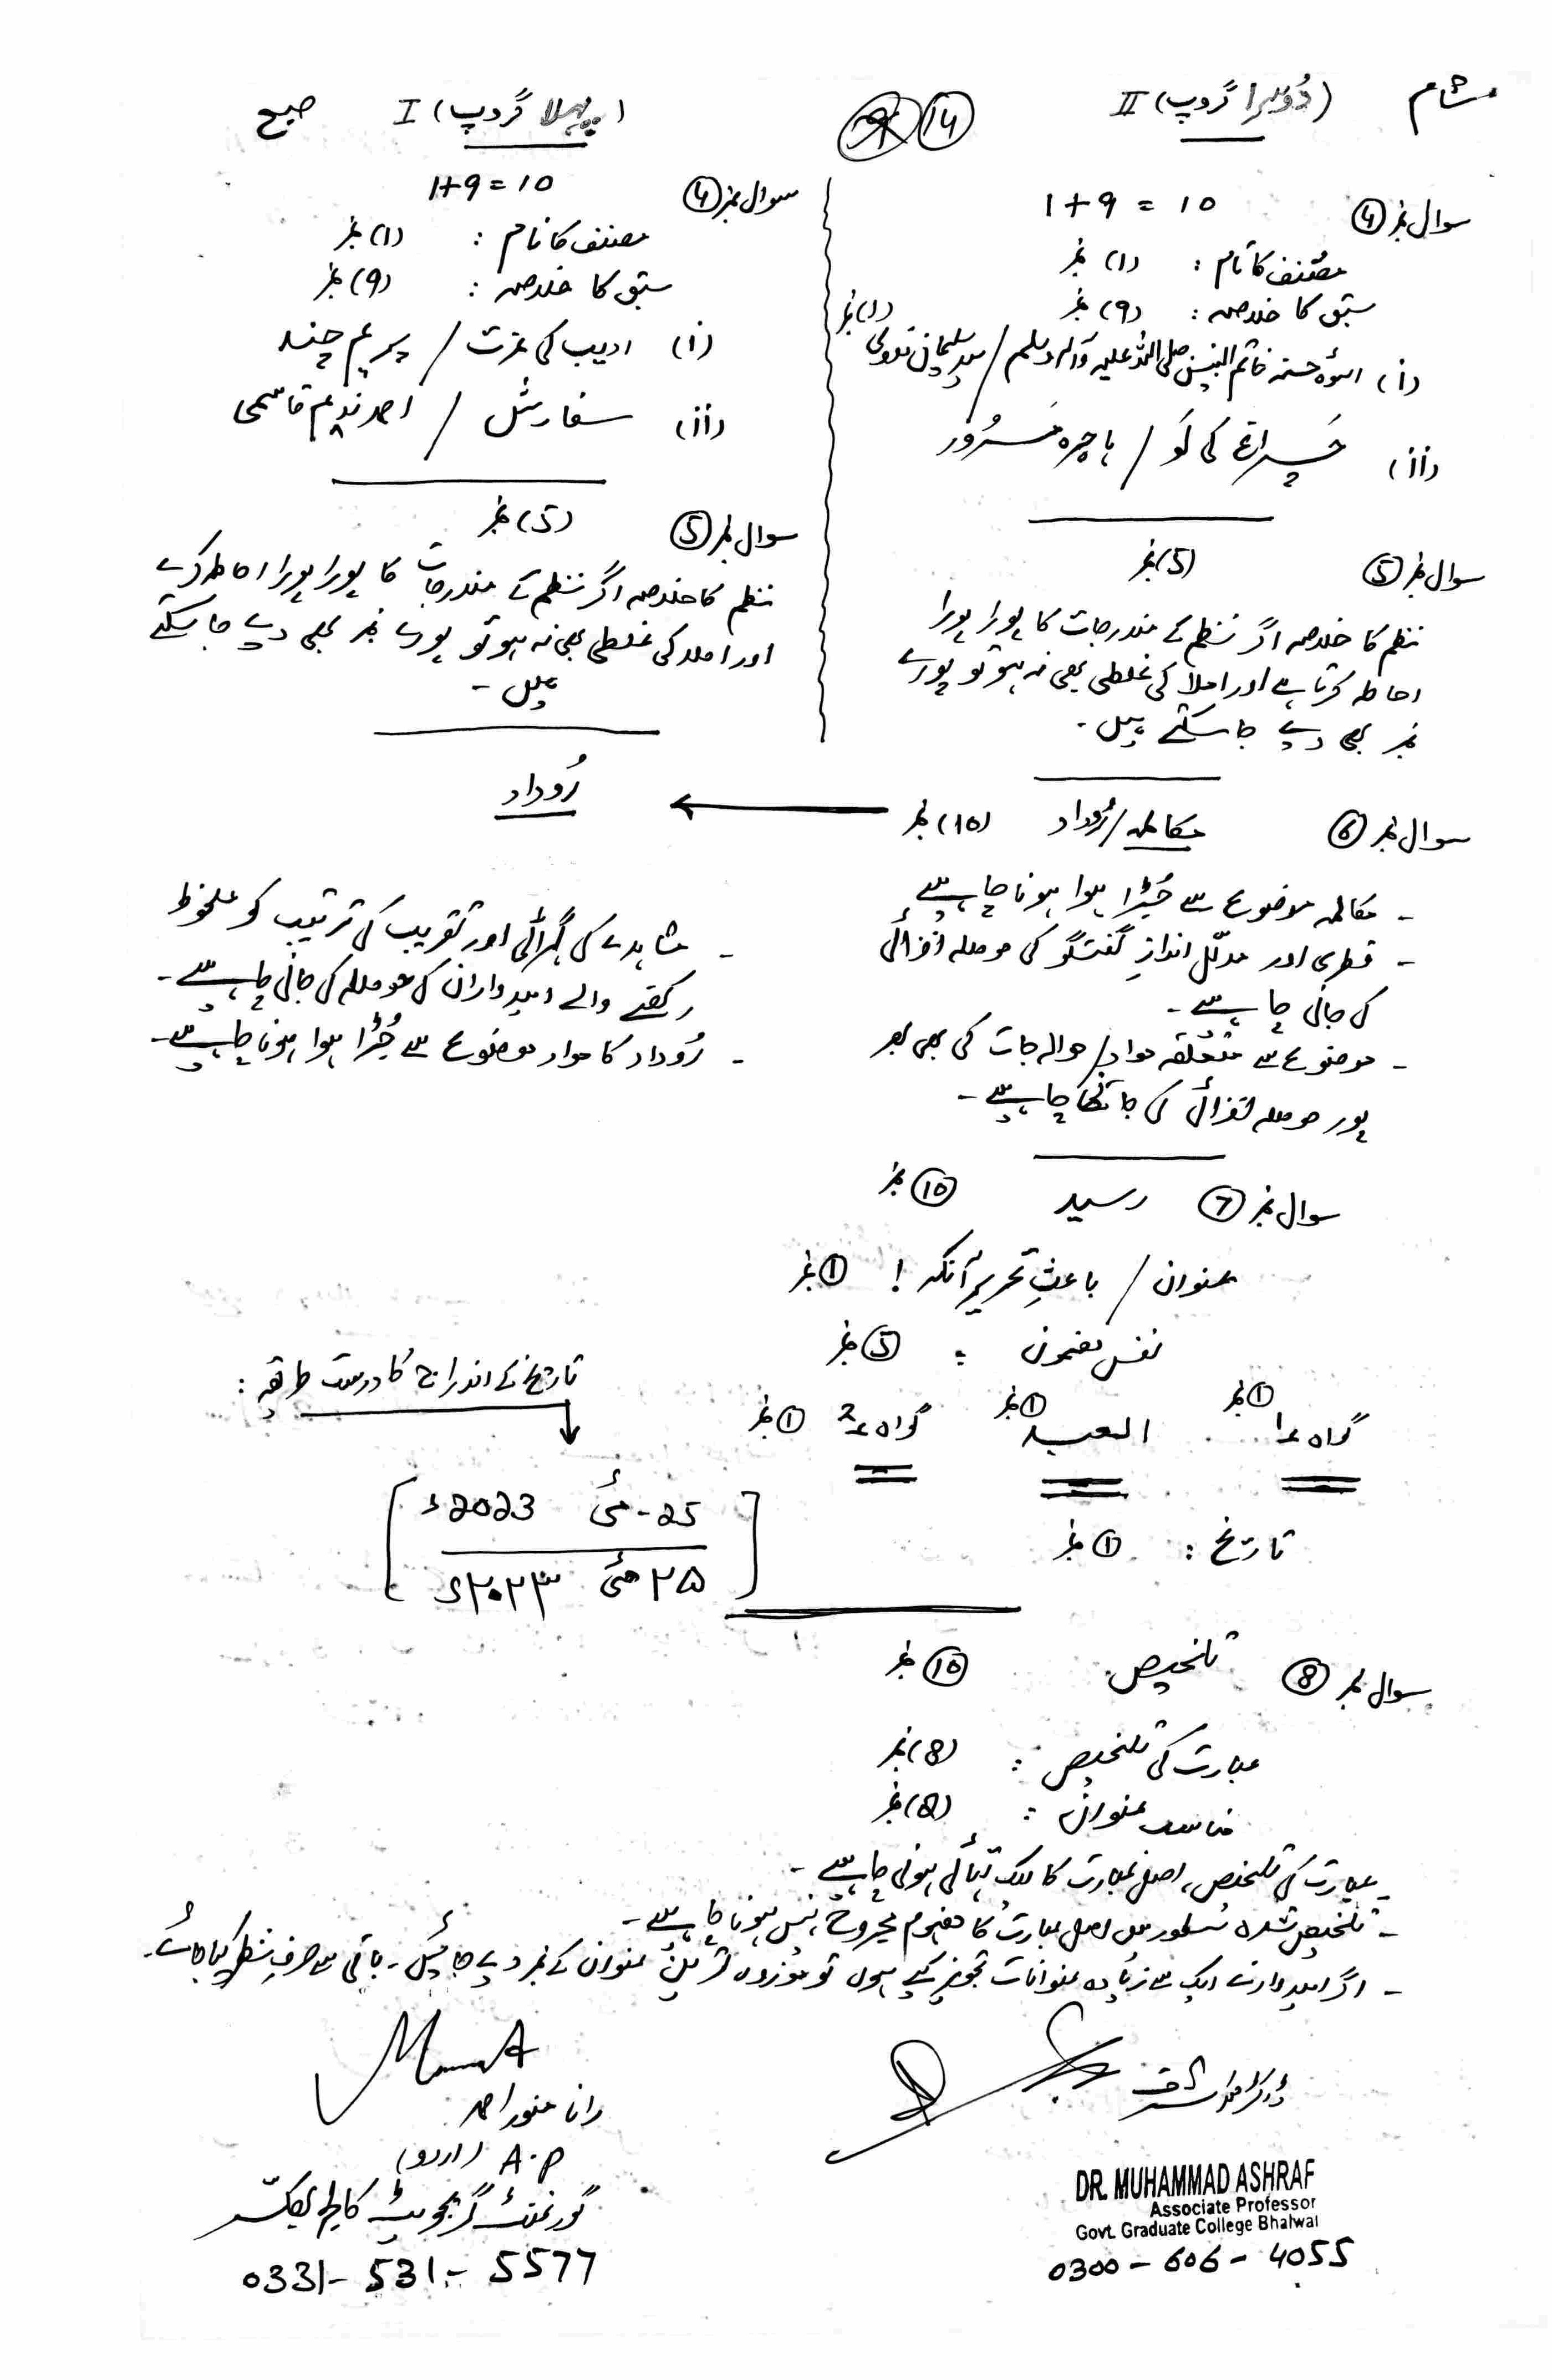 شام (دُوسرا گروپ) II
14
(پہلا گروپ) I صبح
سوال نمبر 4
1+9 = 10
مصنف کا نام : (1) نمبر
سبق کا خلاصہ : (9) نمبر
(i) اسوۂ حسنہ خاتم النبیین صلی اللہ علیہ وآلہ وسلم / سید سلیمان ندوی (1) نمبر
(ii) چراغ کی لَو / ہاجرہ مسرُور
سوال نمبر 5 (5) نمبر
نظم کا خلاصہ اگر نظم کے مندرجات کا پورا پورا
احاطہ کرتا ہے اور املا کی غلطی بھی نہ ہو تو پورے
نمبر بھی دیے جا سکتے ہیں۔
سوال نمبر 4
1+9 = 10
مصنف کا نام : (1) نمبر
سبق کا خلاصہ : (9) نمبر
(i) ادیب کی عزت / پریم چند
(ii) سفارش / احمد ندیم قاسمی
سوال نمبر 5 (5) نمبر
نظم کا خلاصہ اگر نظم کے مندرجات کا پورا پورا احاطہ کرے
اور املا کی غلطی بھی نہ ہو تو پورے نمبر بھی دیے جا سکتے
ہیں۔
سوال نمبر 6 مکالمہ/رُوداد (10) نمبر
- مکالمہ موضوع سے جُڑا ہوا ہونا چاہیے
- فطری اور مدلّل اندازِ گفتگو کی حوصلہ افزائی
کی جانی چاہیے۔
- موضوع سے متعلّقہ مواد/حوالہ جات کی بھی بھر
پور حوصلہ افزائی کی جانی چاہیے۔
رُوداد
- مشاہدے کی گہرائی اور تقریب کی ترتیب کو ملحوظ
رکھنے والے امیدواران کی حوصلہ کی جانی چاہیے۔
- رُوداد کا مواد موضوع سے جُڑا ہوا ہونا چاہیے۔
سوال نمبر 7 رسید 10 نمبر
عنوان / باعثِ تحریر آنکہ ! 1 نمبر
نفس مضمون : 5 نمبر
گواہ ۱ 1 نمبر العبد 1 نمبر گواہ ۲ 1 نمبر
تاریخ : 1 نمبر
تاریخ کے اندراج کا درست طریقہ :
25-مئی 2023ء
۲۵ مئی ۲۰۲۳ء
سوال نمبر 8 تلخیص 10 نمبر
عبارت کی تلخیص : (8) نمبر
مناسب عنوان : (2) نمبر
- عبارت کی تلخیص، اصل عبارت کا ایک تہائی ہونی چاہیے۔
- تلخیص شدہ سطور میں اصل عبارت کا مفہوم مجروح نہیں ہونا چاہیے۔
- اگر امیدوار نے ایک سے زیادہ عنوانات تجویز کیے ہوں تو موزوں ترین عنوان کے نمبر دیے جائیں گے۔ باقی سے صرفِ نظر کیا جائے۔
ڈاکٹر محمد اشرف
DR. MUHAMMAD ASHRAF
Associate Professor
Govt. Graduate College Bhalwal
0300-606-4055
رانا منور احمد
A.P (اردو)
گورنمنٹ گریجویٹ کالج بھکّر
0331-531-5577